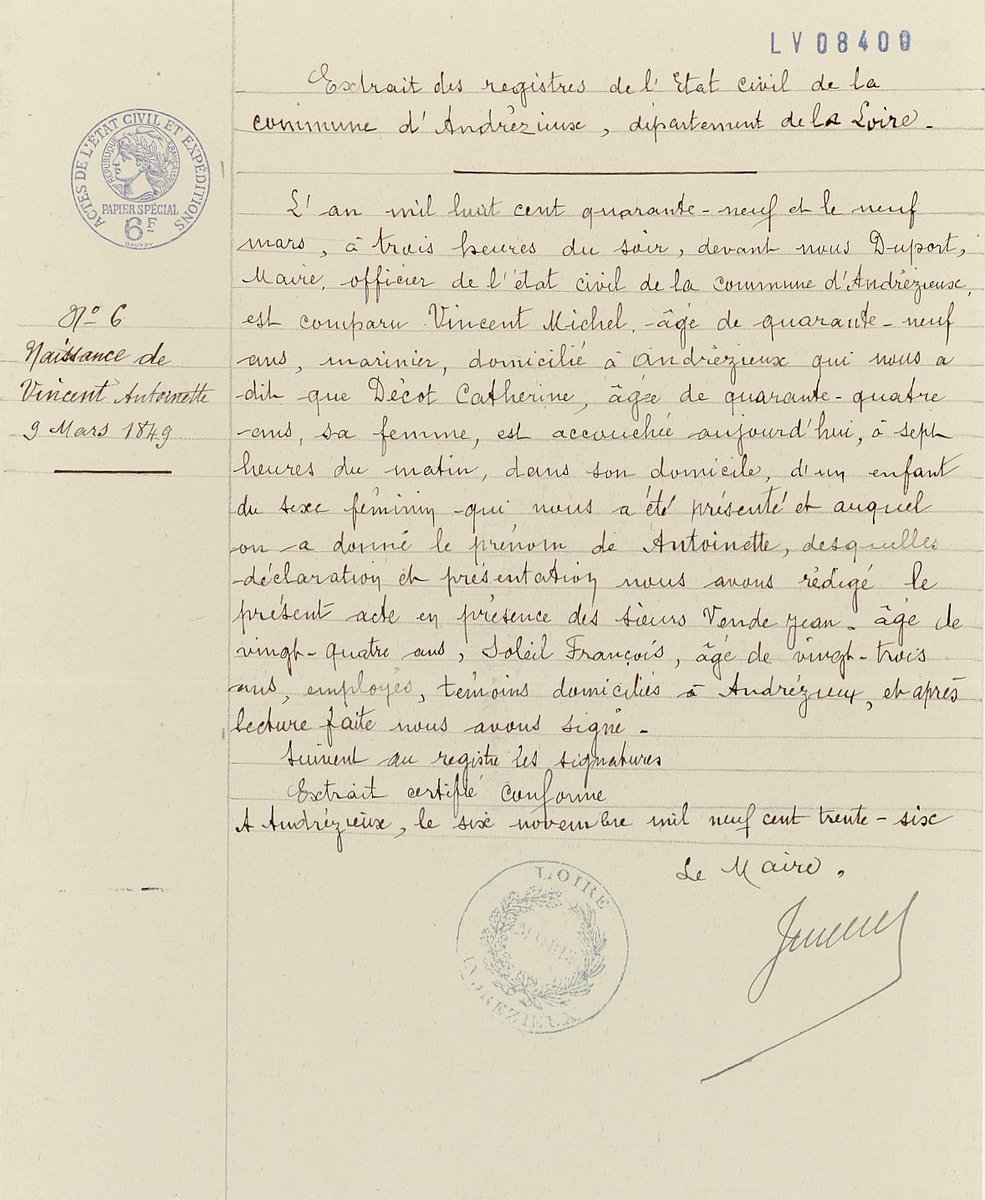 LV08400
Extrait des registres de l'Etat civil de la
commune d'Andrézieux, département de la Loire.
ACTES DE L'ÉTAT CIVIL ET EXPÉDITIONS
RÉPUBLIQUE FRANÇAISE
PAPIER SPÉCIAL
6F
Nº 6
Naissance de
Vincent Antoinette
9 Mars 1849
L'an mil huit cent quarante-neuf et le neuf
mars, à trois heures du soir, devant nous Duport,
Maire, officier de l'état civil de la commune d'Andrézieux,
est comparu Vincent Michel, âgé de quarante-neuf
ans, marinier, domicilié à Andrézieux qui nous a
dit que Décot Catherine, âgée de quarante-quatre
ans, sa femme, est accouchée aujourd'hui, à sept
heures du matin, dans son domicile, d'un enfant
du sexe féminin qui nous a été présenté et auquel
on a donné le prénom de Antoinette, desquelles
déclaration et présentation nous avons rédigé le
présent acte en présence des sieurs Vende Jean, âgé de
vingt-quatre ans, Soleil François, âgé de vingt-trois
ans, employés, témoins domiciliés à Andrézieux, et après
lecture faite nous avons signé.
Suivent au registre les signatures
Extrait certifié conforme
A Andrézieux, le six novembre mil neuf cent trente-six
Le Maire.
LOIRE
MAIRIE
ANDREZIEUX